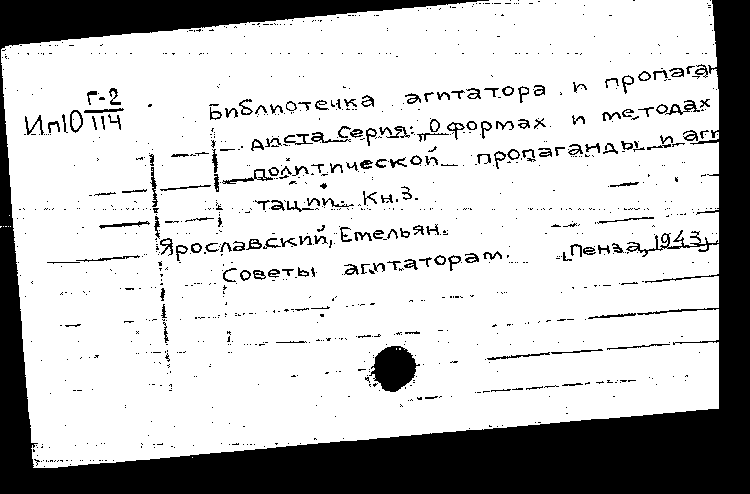 Г-2
Ип10 114
Библиотечка агитатора и пропаган
диста. Серия: „О формах и методах
политической пропаганды и аги
тации. Кн.3.
Ярославский, Емельян.
Советы агитаторам. [Пенза, 1943]